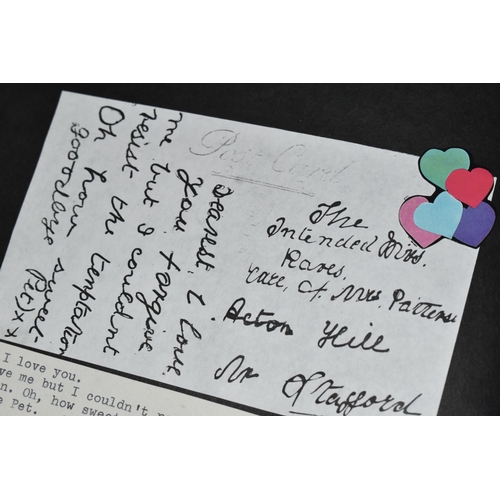 Post Card
Dearest, I love
you, forgive
me but I couldent
resist the temptation
Oh how sweet
Goodbye Pet x x
The
Intended Mrs.
Raves.
care, of. Mrs Patterns
Acton Hill
Nr Stafford
I love you.
ve me but I couldn't r
n. Oh, how sweet
e Pet.